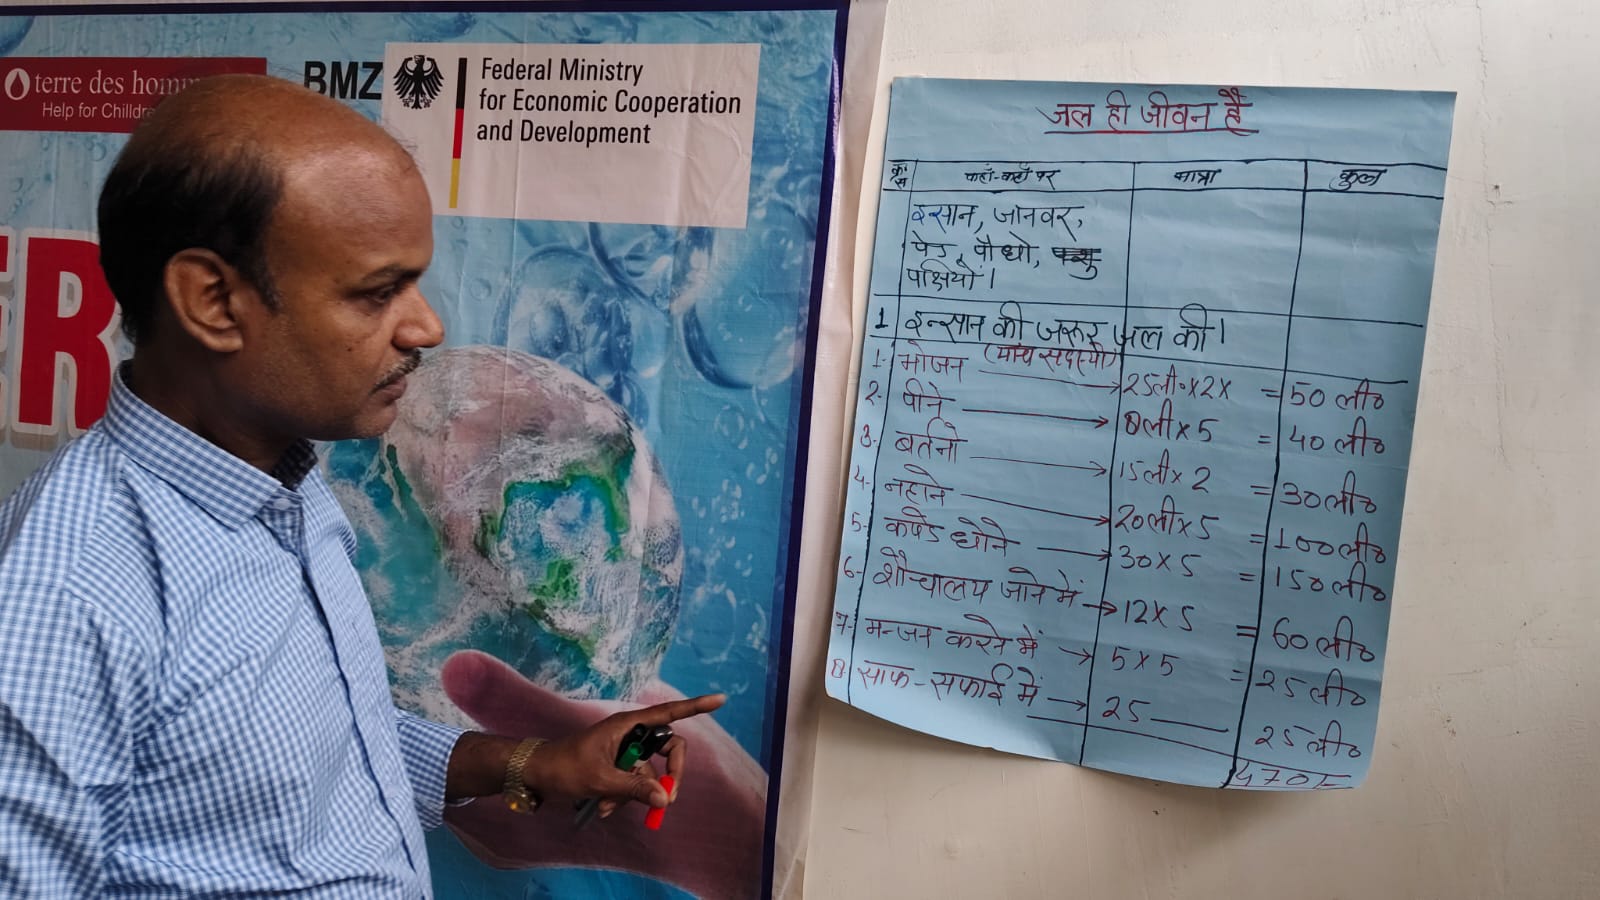 terre des hom
Help for Chilldre
BMZ
Federal Ministry
for Economic Cooperation
and Development
ER
जल ही जीवन है
क्र॰ स कहाँ-कहाँ पर मात्रा कुल
इन्सान, जानवर,
पेड़, पौधो,
पक्षियों।
1 इन्सान की जरूर जल की।
(पांच सदस्यो)
1- भोजन → 25ली॰×2× = 50 ली०
2- पीने → 8ली×5 = 40 ली०
3- बर्तनो → 15ली×2 = 30ली०
4- नहाने → 20ली×5 = 100ली०
5- कपडे धोने → 30×5 = 150ली०
6- शौचालय जाने में → 12×5 = 60ली०
7- मन्जन करने में → 5×5 = 25ली०
8- साफ-सफाई में → 25 — 25ली०
470/-